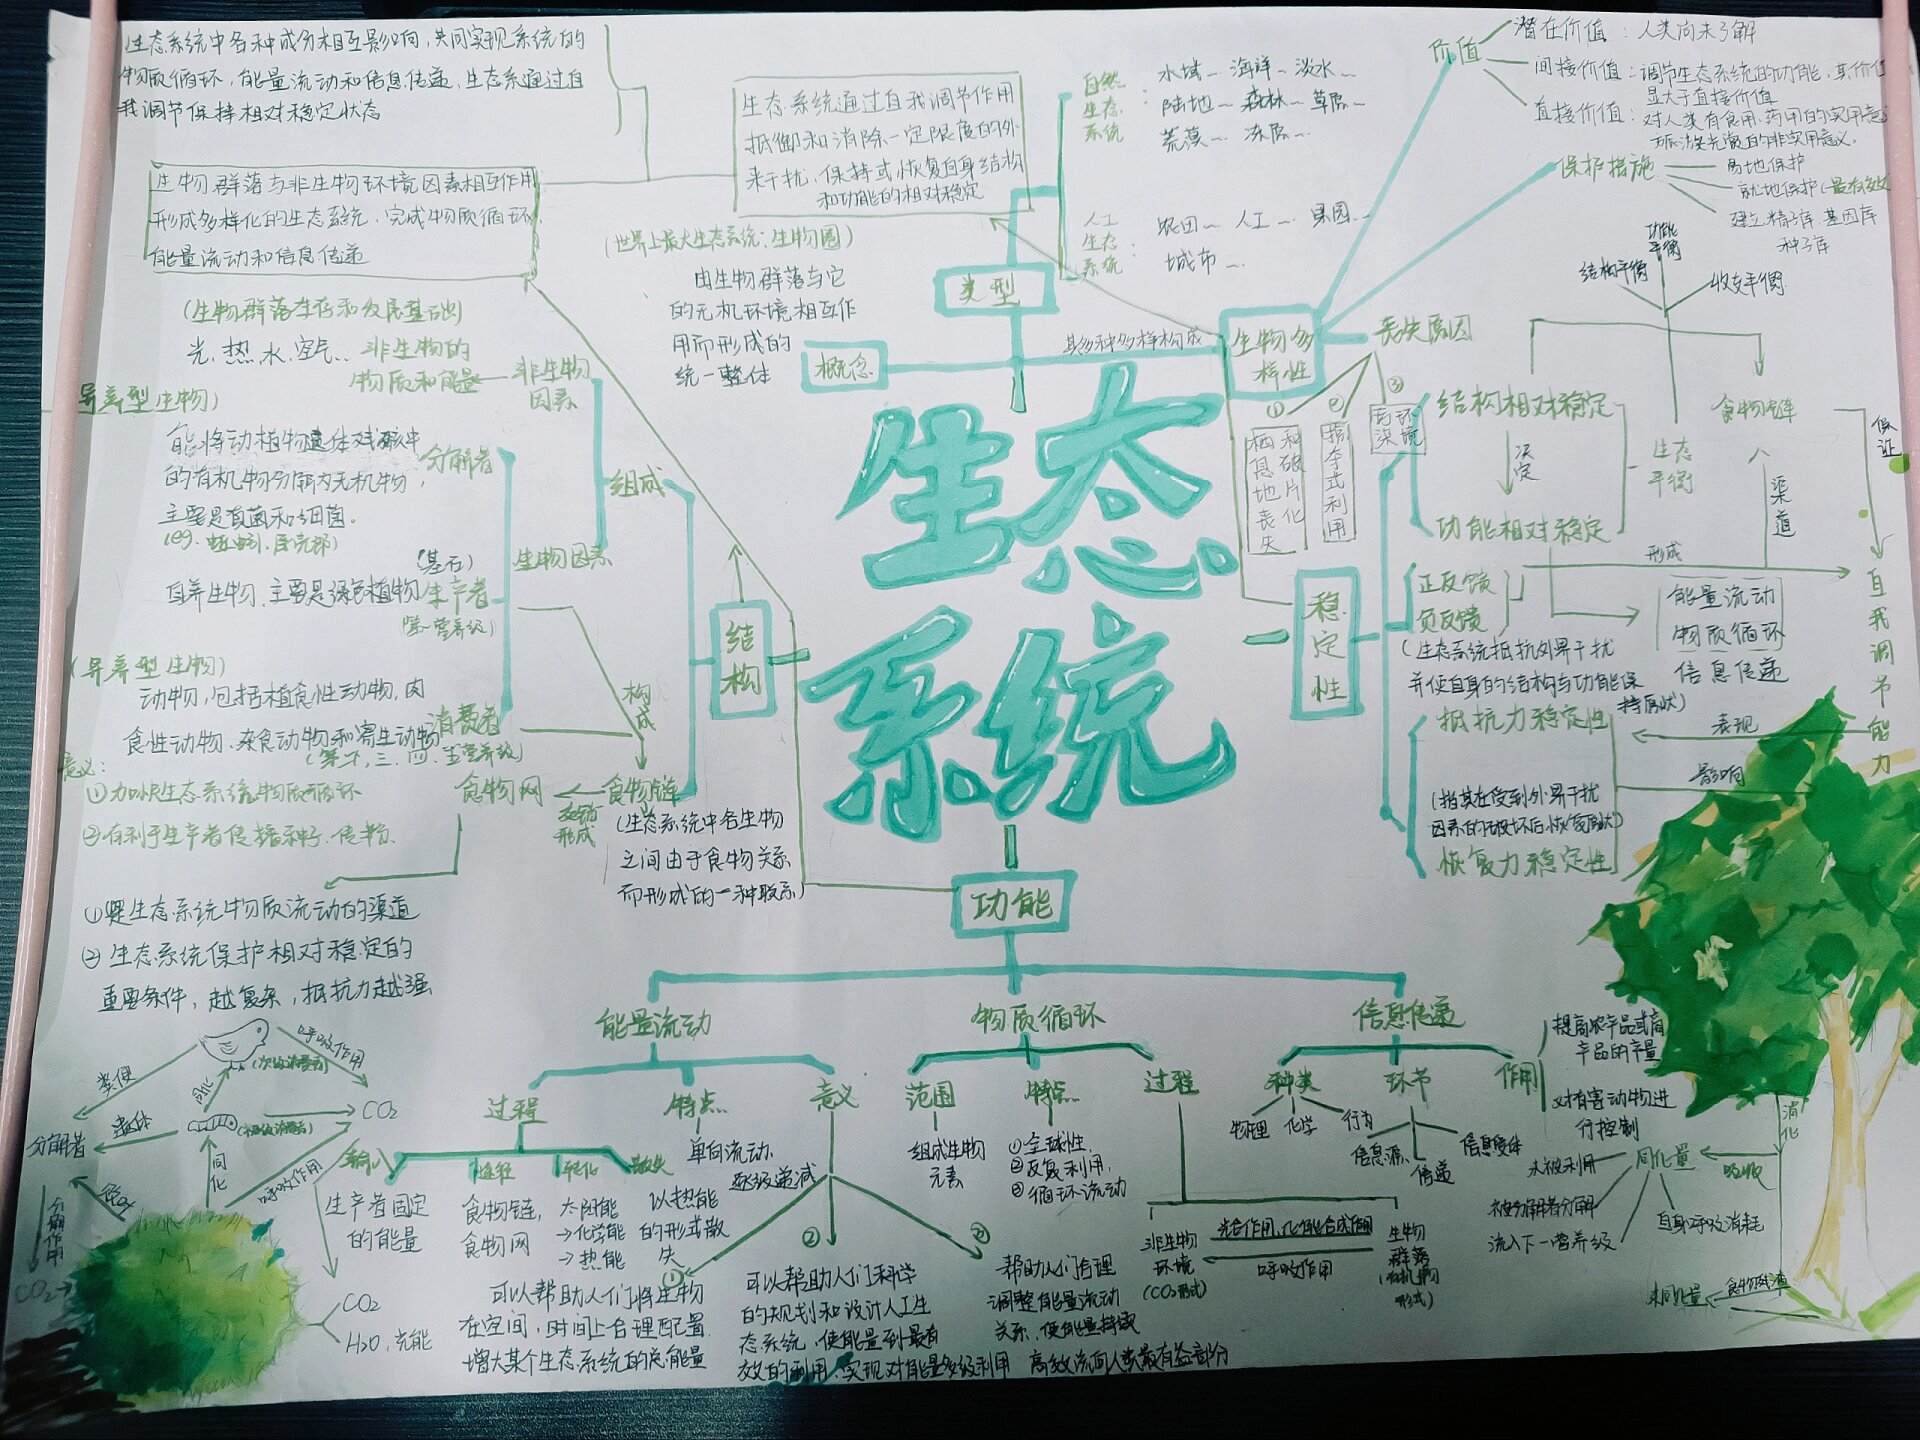 生态系统中各种成分相互影响,共同实现系统的
物质循环,能量流动和信息传递,生态系通过自
我调节保持相对稳定状态
生物群落与非生物环境因素相互作用
形成多样化的生态系统,完成物质循环,
能量流动和信息传递
生态系统通过自我调节作用
抵御和消除一定限度的外
来干扰,保持或恢复自身结构
和功能的相对稳定
(世界上最大生态系统:生物圈)
由生物群落与它
的无机环境相互作
用而形成的
统一整体
概念
类型
自然生态系统:
水域~ 海洋~ 淡水~
陆地~ 森林~ 草原~
荒漠~ 冻原~
人工生态系统:
农田~ 人工~ 果园~
城市~
其多种多样构成
生物多
样性
价值
潜在价值:人类尚未了解
间接价值:调节生态系统的功能,其价值
显大于直接价值
直接价值:对人类有食用,药用的实用意
义
保护措施
易地保护
就地保护(最有效
建立精子库,基因库
种子库
丧失原因
①
栖息地丧失
和破片化
②
掠夺式利用
③
环境
污染
功能平衡
结构平衡
收支平衡
生态平衡
结构相对稳定
决定
功能相对稳定
食物链
渠道
保证
形成
自我调节能力
能量流动
物质循环
信息传递
稳定性
正反馈
负反馈
(生态系统抵抗外界干扰
并使自身的结构与功能保
持原状)
抵抗力稳定性
表现
影响
(指其在受到外界干扰
因素的破坏后恢复原状)
恢复力稳定性
生态
系统
(生物群落生存和发展基础)
光,热,水,空气..
非生物的
物质和能量
非生物
因素
异养型生物)
能将动植物遗体残骸中
的有机物分解为无机物,
主要是真菌和细菌。
(eg、蚯蚓、屎壳郎)
分解者
组成
生物因素
(基石)
自养生物,主要是绿色植物
生产者
(第一营养级)
结构
(异养型生物)
动物,包括植食性动物,肉
食性动物,杂食动物和寄生动物
消费者
(第二,三,四,五营养级)
构成
意义:
①加快生态系统物质循环
②有利于生产者传播种子,传粉.
食物网
食物链
形成
(生态系统中各生物
之间由于食物关系
而形成的一种联系)
①是生态系统物质流动的渠道
②生态系统保护相对稳定的
重要条件,越复杂,抵抗力越强
功能
能量流动
物质循环
信息传递
过程
特点
意义
输入
途径
转化
散失
生产者固定
的能量
食物链,
食物网
太阳能
→化学能
→热能
以热能
的形式散
失
单向流动,
逐级递减
①
可以帮助人们将生物
在空间,时间上合理配置.
增大某个生态系统的总能量
②
可以帮助人们科学
的规划和设计人工生
态系统,使能量到最有
效的利用,实现对能量多级利用
帮助人们合理
调整能量流动
关系,使能量持续
高效流向人类最有益部分
范围
特点
过程
组成生物
元素
①全球性,
②反复利用,
③循环流动
非生物
环境
(CO₂形式)
光合作用,化能合成作用
呼吸作用
生物
群落
(有机物
形式)
种类
环节
作用
物理
化学
行为
信息源
传递
信息受体
提高农产品或畜
产品的产量
对有害动物进
行控制
呼吸作用
(次级消费者)
粪便
同化
遗体
CO₂
分解者
同化
呼吸作用
分解作用
CO₂
CO₂
H₂O,光能
消化
吸收
同化量
未被利用
被分解者分解
自身呼吸消耗
流入下一营养级
未同化量
食物残渣